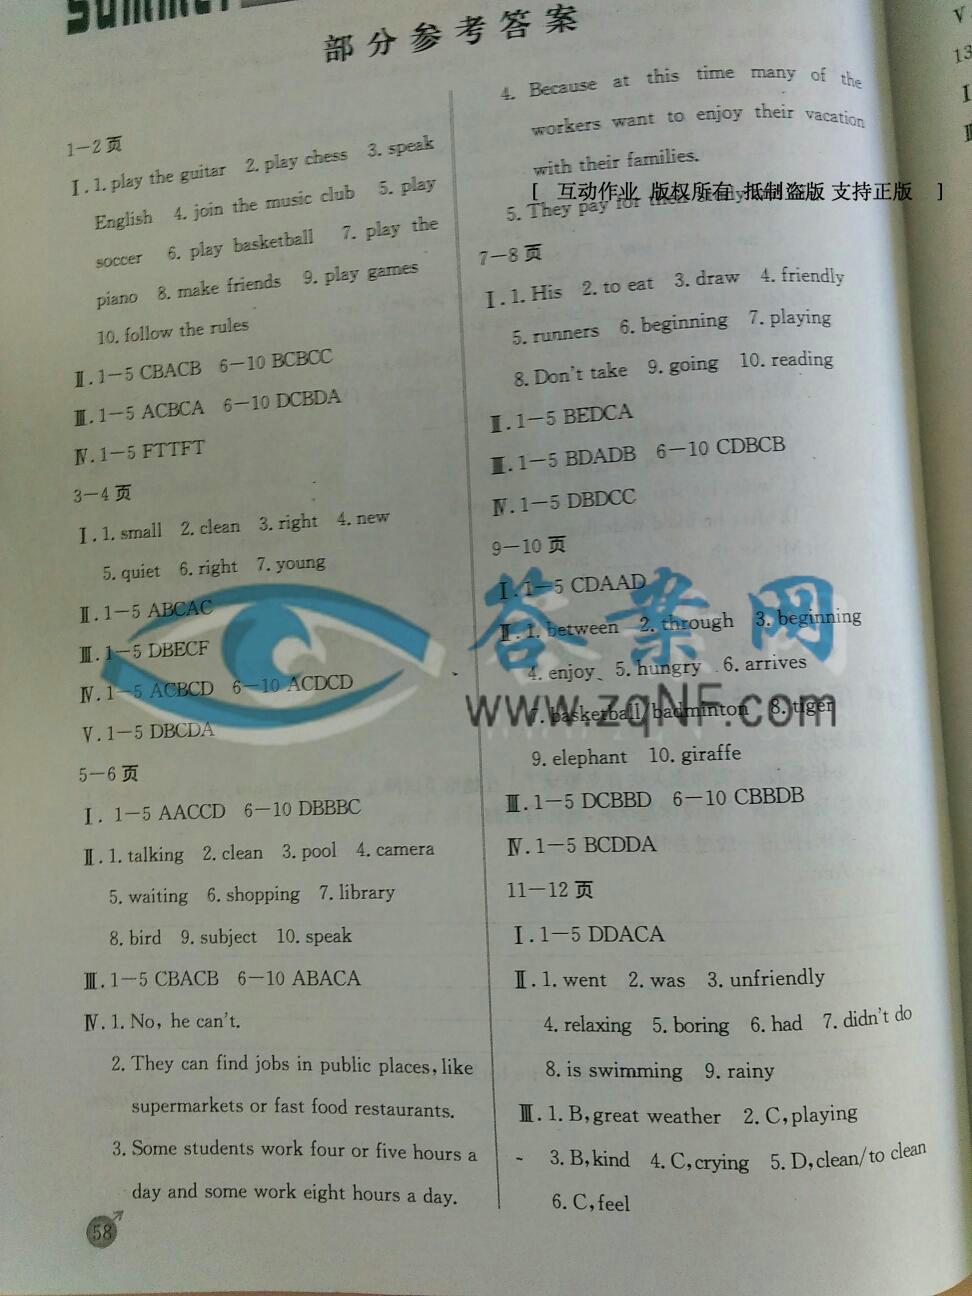 Summer
部分参考答案
1－2页
Ⅰ.1. play the guitar 2. play chess 3. speak
English 4. join the music club 5. play
soccer 6. play basketball 7. play the
piano 8. make friends 9. play games
10. follow the rules
Ⅱ.1－5 CBACB 6－10 BCBCC
Ⅲ.1－5 ACBCA 6－10 DCBDA
Ⅳ.1－5 FTTFT
3－4页
Ⅰ.1. small 2. clean 3. right 4. new
5. quiet 6. right 7. young
Ⅱ.1－5 ABCAC
Ⅲ.1－5 DBECF
Ⅳ.1－5 ACBCD 6－10 ACDCD
Ⅴ.1－5 DBCDA
5－6页
Ⅰ. 1－5 AACCD 6－10 DBBBC
Ⅱ.1. talking 2. clean 3. pool 4. camera
5. waiting 6. shopping 7. library
8. bird 9. subject 10. speak
Ⅲ.1－5 CBACB 6－10 ABACA
Ⅳ.1. No, he can't.
2. They can find jobs in public places, like
supermarkets or fast food restaurants.
3. Some students work four or five hours a
day and some work eight hours a day.
58
4. Because at this time many of the
workers want to enjoy their vacation
with their families.
[ 互动作业 版权所有 抵制盗版 支持正版 ]
5. They pay for their
7－8页
Ⅰ.1. His 2. to eat 3. draw 4. friendly
5. runners 6. beginning 7. playing
8. Don't take 9. going 10. reading
Ⅱ.1－5 BEDCA
Ⅲ.1－5 BDADB 6－10 CDBCB
Ⅳ.1－5 DBDCC
9－10页
Ⅰ.1－5 CDAAD
Ⅱ.1. between 2. through 3. beginning
4. enjoy 5. hungry 6. arrives
7. basketball/badminton 8. tiger
9. elephant 10. giraffe
Ⅲ.1－5 DCBBD 6－10 CBBDB
Ⅳ.1－5 BCDDA
11－12页
Ⅰ.1－5 DDACA
Ⅱ.1. went 2. was 3. unfriendly
4. relaxing 5. boring 6. had 7. didn't do
8. is swimming 9. rainy
Ⅲ.1. B, great weather 2. C, playing
3. B, kind 4. C, crying 5. D, clean/to clean
6. C, feel
答案网
www.zqNF.com
Ⅴ
13